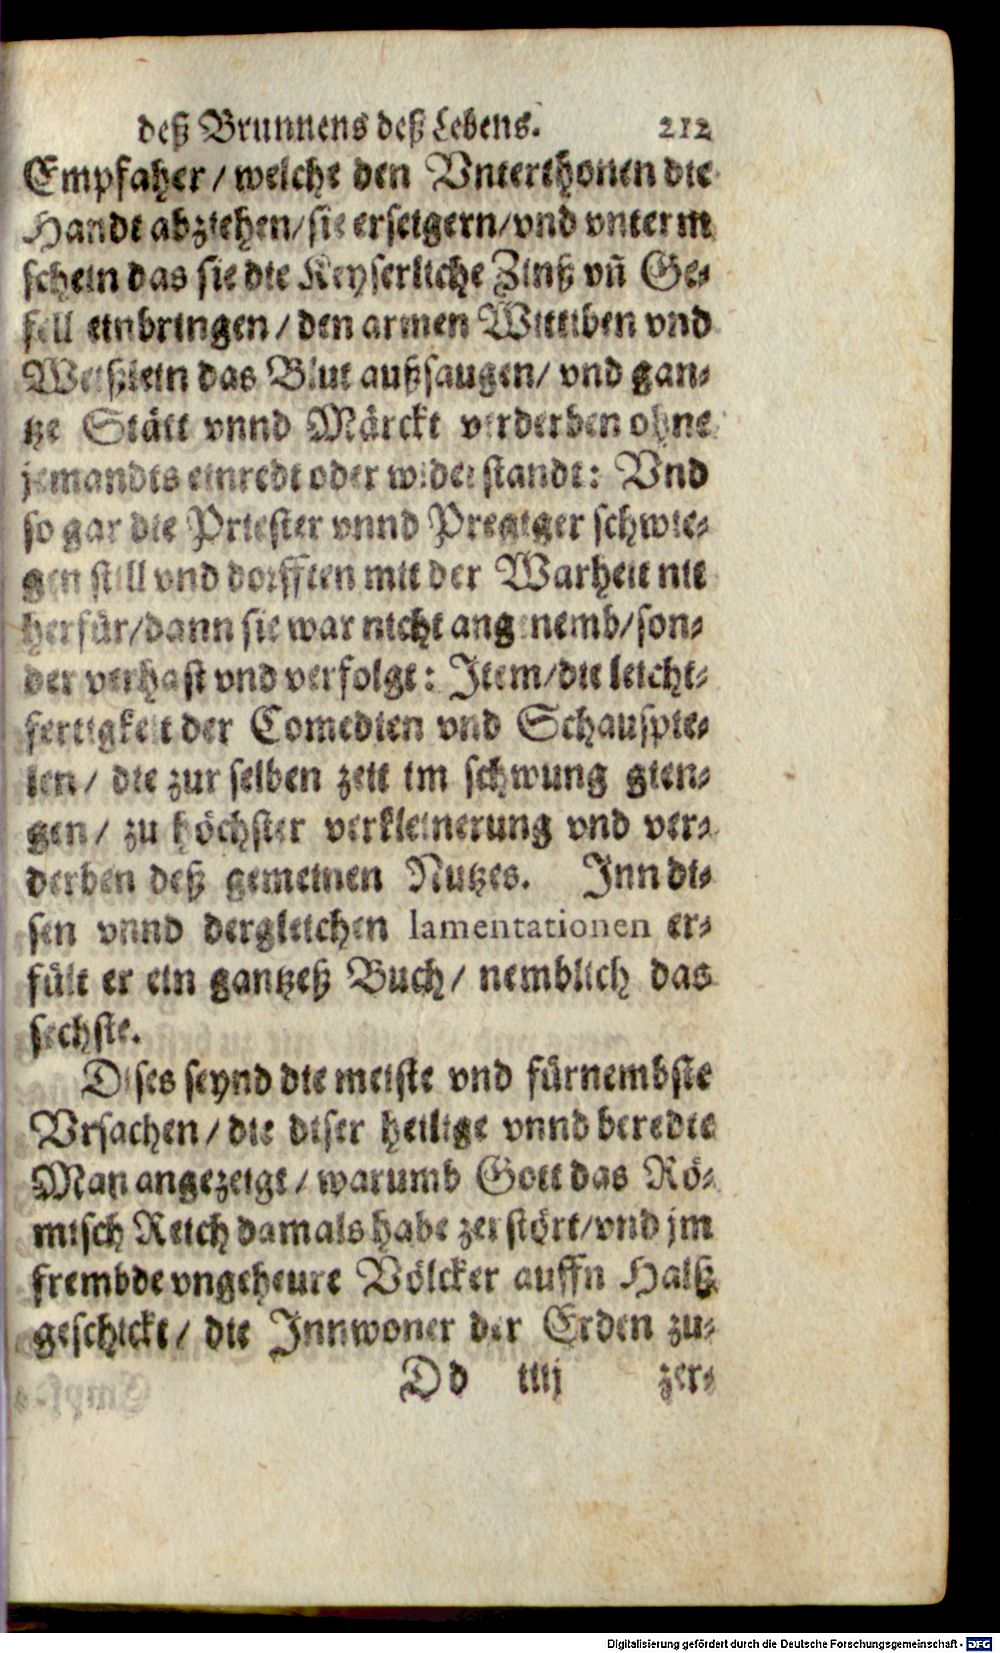 deß Brunnens deß Lebens. 212
Empfaher / welche den Vnterthonen die
Handt abziehen / sie erseigern / vnd vnterm
schein das sie die Keyserliche Zinß vñ Ge-
fell einbringen / den armen Wittiben vnd
Weißlein das Blut außsaugen / vnd gan-
tze Stätt vnnd Märckt verderben ohne
jemandts einredt oder widerstandt: Vnd
so gar die Priester vnnd Prediger schwie-
gen still vnd dorfften mit der Warheit nit
herfür / dann sie war nicht angenemb / son-
der verhast vnd verfolgt: Item / die leicht-
fertigkeit der Comedien vnd Schauspie-
len / die zur selben zeit im schwung gien-
gen / zu höchster verkleinerung vnd ver-
derben deß gemeinen Nutzes. Inn di-
sen vnnd dergleichen lamentationen er-
fült er ein gantzeß Buch / nemblich das
sechste.
Dises seynd die meiste vnd fürnembste
Vrsachen / die diser heilige vnnd beredte
Man angezeigt / warumb Gott das Rö-
misch Reich damals habe zerstört / vnd jm
frembde vngeheure Völcker auffn Halß
geschickt / die Innwoner der Erden zu-
Dd iiij zer-
Digitalisierung gefördert durch die Deutsche Forschungsgemeinschaft - DFG